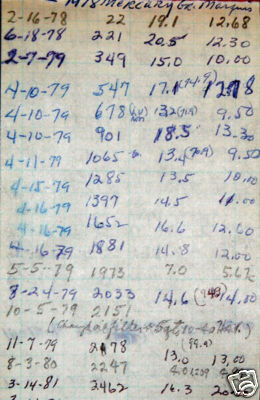 1978 Mercury Gr. Marquis
2-16-78 22 19.1 12.68
6-18-78 221 20.5 12.30
2-7-79 349 15.0 10.00
4-10-79 547 17.1 (74.9)
4-10-79 678 13.2 (71.9) 9.50
4-10-79 901 18.5 13.30
4-11-79 1065 13.4 (70.9) 9.50
4-15-79 1285 13.5 10.00
4-16-79 1397 14.5
4-16-79 1652 16.6 12.00
4-16-79 1881 14.8 12.00
5-5-79 1973 7.0 5.67
8-24-79 2033 14.6 14.00
10-5-79 2151
11-7-79 2178 13.0 (99.9) 13.00
8-3-80 2247
3-14-81 2462 16.3